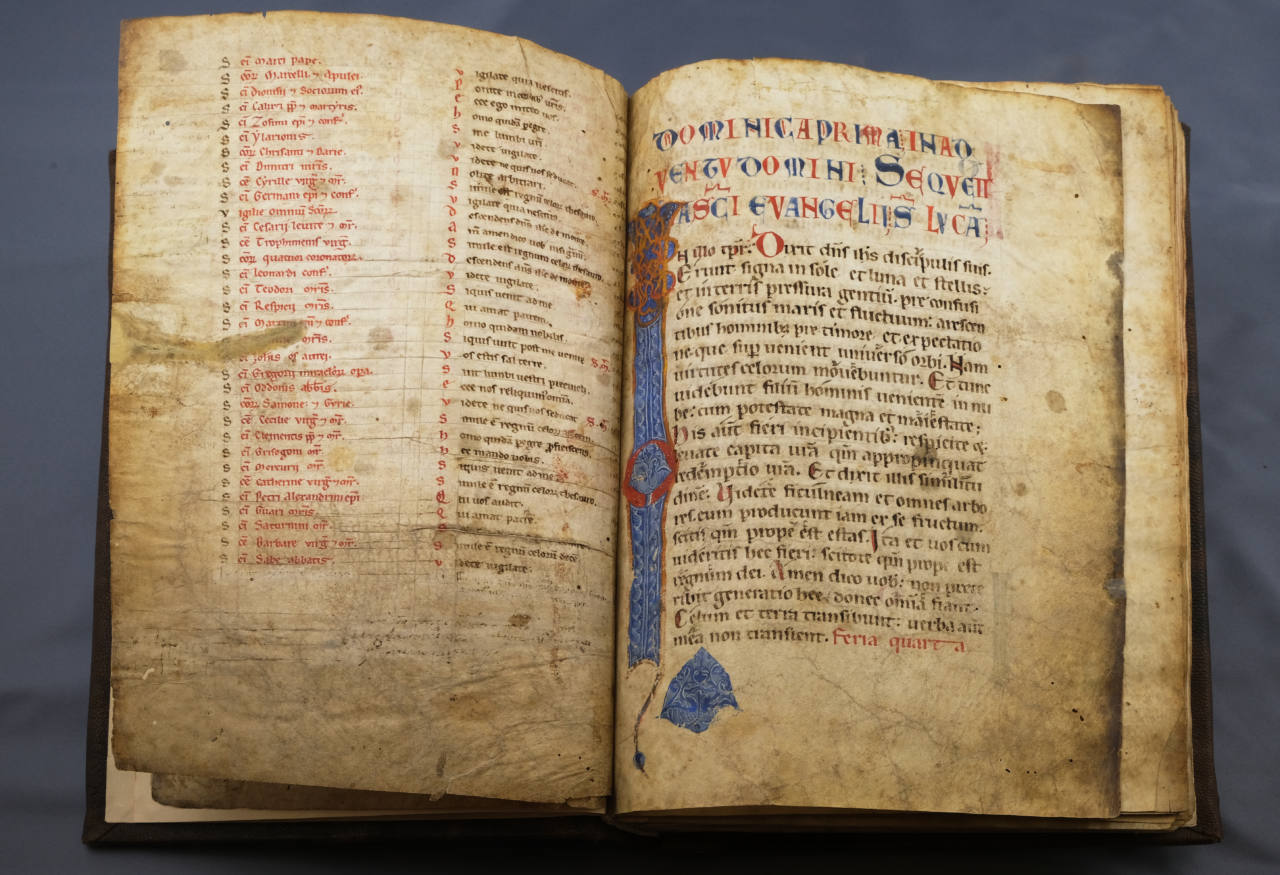 S ci Marci pape.
S cor Marcelli ⁊ Apulei.
S ci Dionisii ⁊ sociorum ei.
S ci Calixti pp ⁊ martyris.
S ci Zosimi epi ⁊ conf.
S ci Ylarionis.
S cor Chrisanti ⁊ Darie.
S ci Dimitri mris.
S ce Cyrille virg ⁊ mr.
S ci Germani epi ⁊ conf.
V igilie omniu scor.
S ci Cesarii levite ⁊ mr.
S ce Trophimenis virg.
S cor quatuor coronator.
S ci Leonardi conf.
S ci Teodori mris.
S ci Respicii mris.
S ci Martini epi ⁊ conf.
mris.
S ci Gregorii miraclor opa.
S ci Oddonis abbis.
S cor Damone ⁊ Gyrie.
S ce Cecilie virg ⁊ mr.
S ci Clementis pp ⁊ mr.
S ci Grisogoni mr.
S ci Mercurii mr.
S ce Catherine virg ⁊ mr.
S ci Petri Alexandrini epi
S ci Saturnini mr.
S ce Barbare virg ⁊ mr.
S ci Sabe abbatis.
V igilate quia nescitis.
P onite in cordib vris.
E cce ego mitto vos.
h omo quida pegre.
S int lumbi vri
V idete vigilate.
V idete ne quis vos seducat.
N olite arbitrari.
S imile est regnu celor thesauro.
V igilate quia nescitis.
D escendens dns ihc de monte.
A m amen dico vob insigniu.
S imile est regnu celor thesauro.
D escendens dns ihc de monte
V idete vigilate.
S iquis venit ad me
Q ui amat patrem.
h omo quidam nobilis.
S iquis vult post me venire
V os estis sal terre.
S int lumbi vestri precincti.
E cce nos reliquim omia.
V idete ne quis vos seducat
S imile e regnu celor thesauro
h omo quida pegre pficiscens.
h ec mando vobis.
S iquis venit ad me.
S imile e regnu celor thesauro.
Q ui vos audit.
Q ui amat patre.
S imile e regnu celoru dece
V idete vigilate.
DOMINICA PRIMA IN AD
VENTU DOMINI: SEQUEN
TIA SCI EVANGELII S LUCA
IN illo tpr. Dixit dns ihs discipulis suis.
Erunt signa in sole et luna et stellis:
et in terris pressura gentiu: pre confusi
one sonitus maris et fluctuum: arescen
tibus hominib pre timore et expectatio
ne que sup venient universo orbi. Nam
virtutes celorum movebuntur. Et tunc
videbunt filiu hominis veniente in nu
be: cum potestate magna et maiestate:
his aut fieri incipientib: respicite ⁊
levate capita vra qm appropinquat
redemptio vra. Et dixit illis similitu
dine: Videte ficulneam et omnes arbo
res. cum producunt iam ex se fructum.
scitis qm prope est estas. Ita et vos cum
videritis hec fieri: scitote qm prope est
regnum dei. Amen dico vob: non prete
ribit generatio hec donec omia fiant.
Celum et terra transibunt: verba aut
mea non transient. Feria quarta